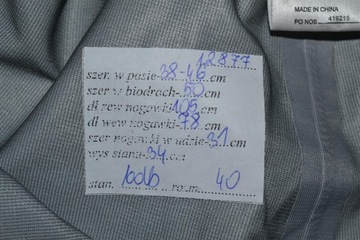 MADE IN CHINA
PO NOS 419215
12877
szer. w pasie-38-46.cm
szer w biodrach-50cm
dl zew nogawki-105cm
dl wew nogawki-78cm
szer nogawki w udzie-31cm
wys stanu-34cm
stan. bdb rozm. 40